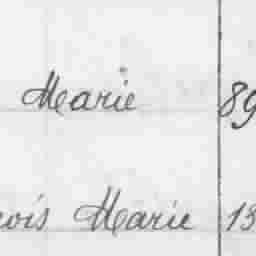 Marie 89
Marie 13